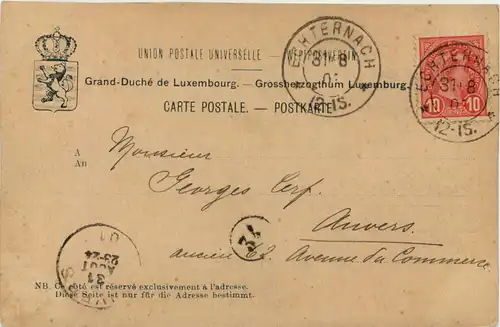 UNION POSTALE UNIVERSELLE. — WELTPOSTVEREIN.
Grand-Duché de Luxembourg. — Grossherzogthum Luxemburg.
CARTE POSTALE. — POSTKARTE.
ECHTERNACH
31 8
01
12-1S.
ECHTERNACH
31 8
12-1S.
10 10
A
An
Monsieur
Georges Cerf.
Anvers.
ancien 62. Avenue du Commerce
01
23-24
AOUT
31
NB. Ce côté est réservé exclusivement à l'adresse.
Diese Seite ist nur für die Adresse bestimmt.